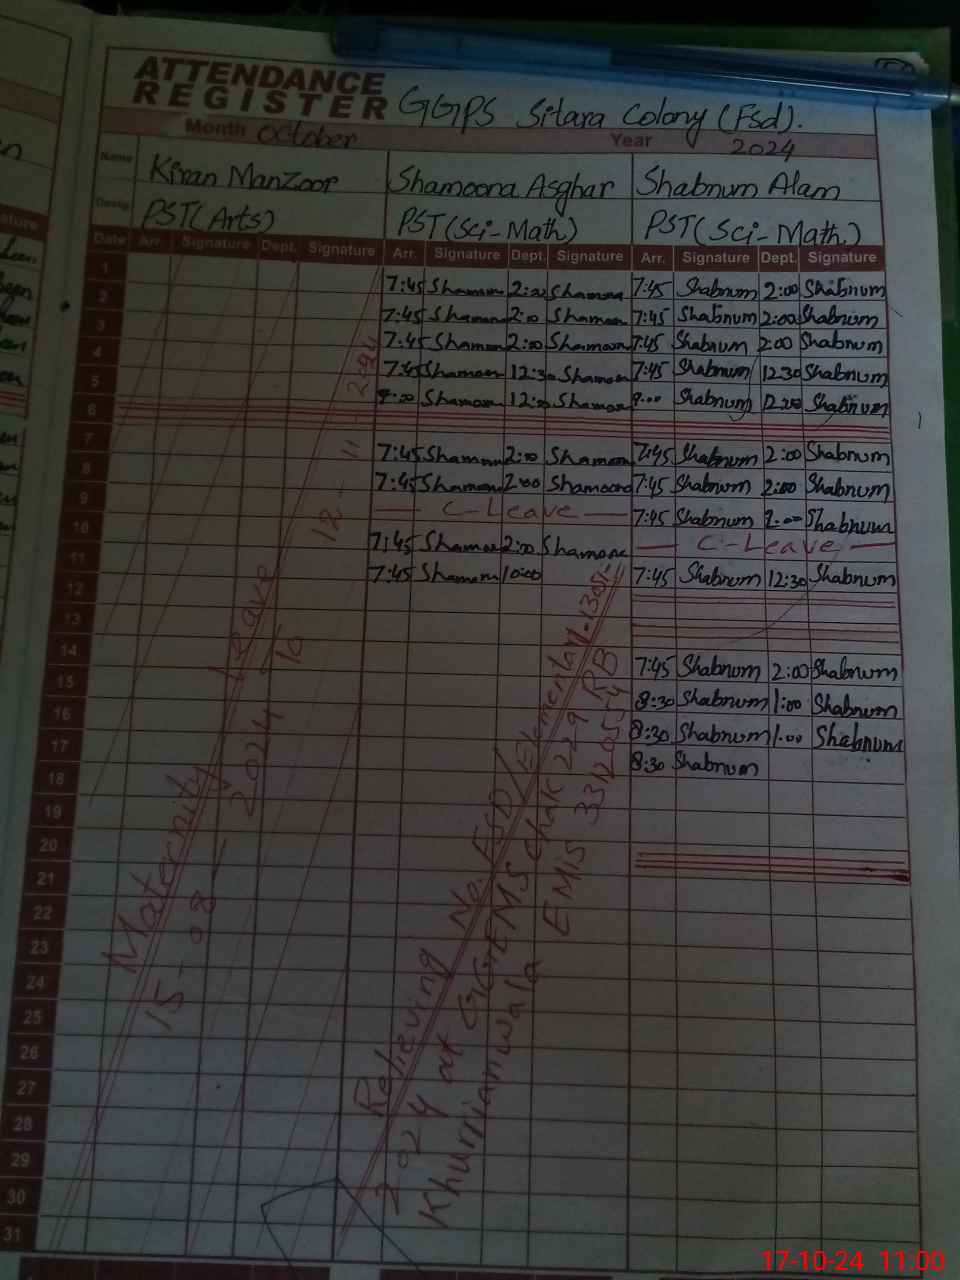 ATTENDANCE
REGISTER GGPS Sitara Colony (Fsd).
Month October Year 2024
Name Kiran Manzoor Shamoona Asghar Shabnum Alam
Desig. PST(Arts) PST(Sci-Math) PST(Sci-Math.)
Date Arr. Signature Dept. Signature Arr. Signature Dept. Signature Arr. Signature Dept. Signature
1 7:45 2:00 Shamoona 7:45 Shabnum 2:00 Shabnum
2 7:45 2:00 7:45 Shabnum 2:00 Shabnum
3 7:45 2:00 7:45 Shabnum 2:00 Shabnum
4 7:45 12:30 7:45 Shabnum 12:30 Shabnum
5 8:00 12:00 8:00 Shabnum 12:00 Shabnum
6
7 7:45 2:00 7:45 Shabnum 2:00 Shabnum
8 7:45 2:00 Shamoona 7:45 Shabnum 2:00 Shabnum
9 C-Leave 7:45 Shabnum 2:00 Shabnum
10 7:45 2:00 Shamoona C-Leave
11 7:45 10:00 7:45 Shabnum 12:30 Shabnum
12
13
14 7:45 Shabnum 2:00 Shabnum
15 8:30 Shabnum 1:00 Shabnum
16 8:30 Shabnum 1:00 Shabnum
17 8:30 Shabnum
18
19
20
21
22
23
24
25
26
27
28
29
30
31
Maternity Leave
15-08-2024 to 12-11-2024
Relieving No. FSD/Elementary-1305-
2024 at GGEMS Chak 229 RB
Khurrianwala EMIS 33120554
17-10-24 11:00